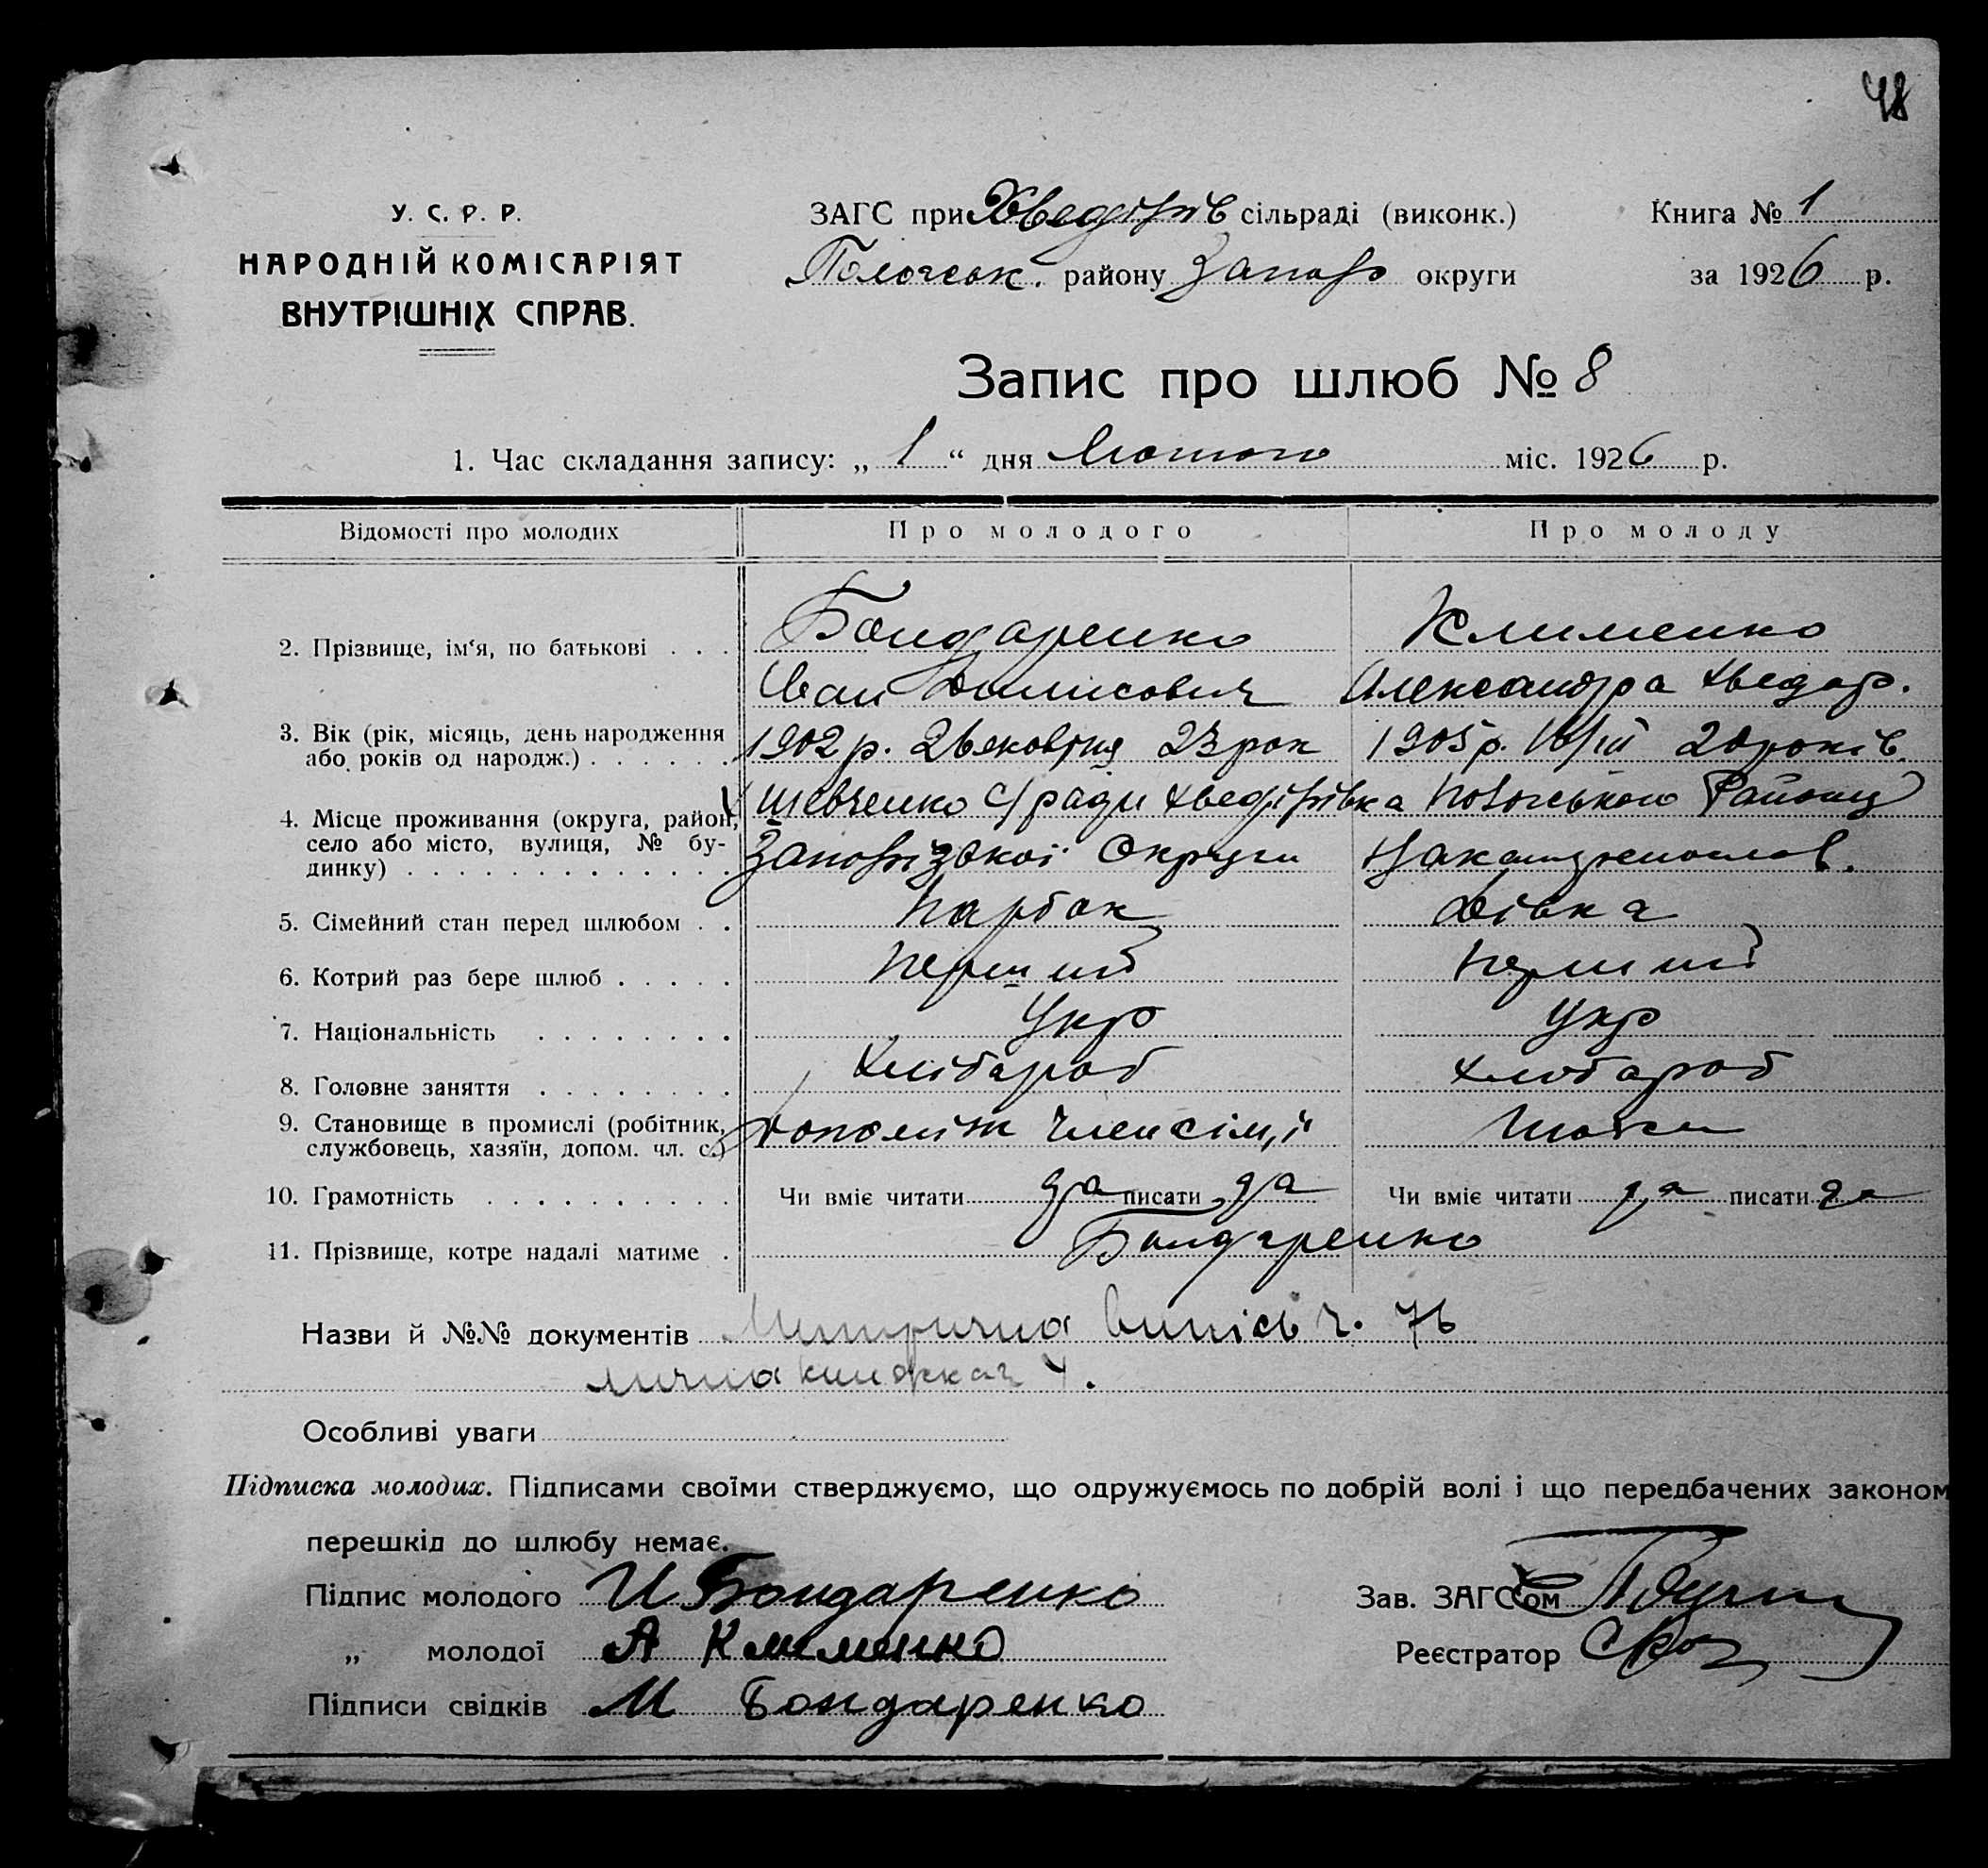 48
У. С. Р. Р.
НАРОДНІЙ КОМІСАРІЯТ
ВНУТРІШНІХ СПРАВ.
ЗАГС при Хведірів сільраді (виконк.)
Пологськ. району Запоріз округи
Книга № 1
за 1926 р.
Запис про шлюб № 8
1. Час складання запису: „ 1 “ дня Лютого міс. 1926 р.
Відомості про молодих Про молодого Про молоду
2. Прізвище, ім‘я, по батькові . . . Бондаренко Клименко
Іван Денисович Александра Хведор.
3. Вік (рік, місяць, день народження
або років од народж.) . . . . . . 1902 р. 26 яковтня 23 рок 1905 р. 20 років
4. Місце проживання (округа, район, Шевченко с/ради Хведірівка Пологського Району
село або місто, вулиця, № бу-
динку) . . . . . . . . . . . . . Запорізської Округи
5. Сімейний стан перед шлюбом . . Парбок Дівка
6. Котрий раз бере шлюб . . . . . Перший Перший
7. Національність . . . . . . . . Укр Укр
8. Головне заняття . . . . . . . . Хлібароб Хлібароб
9. Становище в промислі (робітник,
службовець, хазяїн, допом. чл. с.) допоміж член сім,ї
10. Грамотність . . . . . . . . . . Чи вміє читати да писати да Чи вміє читати да писати да
11. Прізвище, котре надалі матиме . Бондаренко
Назви й №№ документів Метрична Випісь ч. 76
лична книжка ч.
Особливі уваги
Підписка молодих. Підписами своїми стверджуємо, що одружуємось по добрій волі і що передбачених законом
перешкід до шлюбу немає.
Підпис молодого И Бондаренко Зав. ЗАГС'ом
„ молодої А Клименко Реєстратор
Підписи свідків М Бондаренко